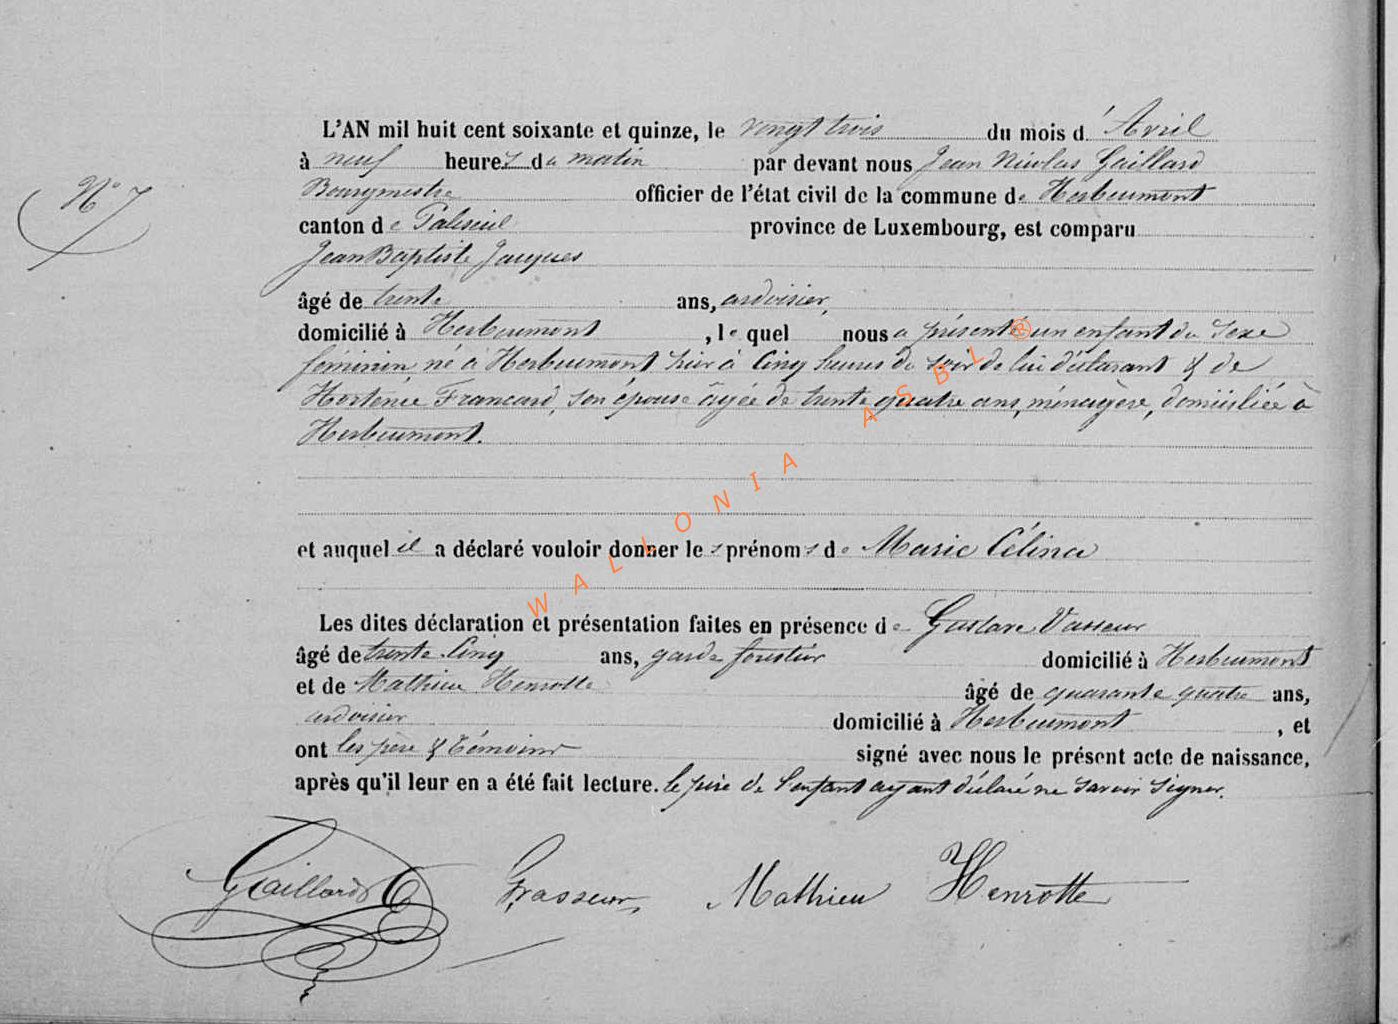 N° 7
L'AN mil huit cent soixante et quinze, le vingt trois du mois d'Avril
à neuf heures du matin par devant nous Jean Nicolas Gaillard
Bourgmestre officier de l'état civil de la commune de Herbeumont
canton de Paliseul province de Luxembourg, est comparu
Jean Baptiste Jacques
âgé de trente ans, ardoisier,
domicilié à Herbeumont, lequel nous a présenté un enfant du sexe
féminin, né à Herbeumont hier à cinq heures du soir de lui déclarant & de
Hortense Francard, son épouse âgée de trente quatre ans, ménagère, domiciliée à
Herbeumont.
et auquel il a déclaré vouloir donner les prénoms de Marie Célina
Les dites déclaration et présentation faites en présence de Gustave Vasseur
âgé de trente cinq ans, garde forestier domicilié à Herbeumont
et de Mathieu Henrotte âgé de quarante quatre ans,
ardoisier domicilié à Herbeumont, et
ont les père & témoins signé avec nous le présent acte de naissance,
après qu'il leur en a été fait lecture. le père de l'enfant ayant déclaré ne savoir signer.
Gaillard Mathieu Henrotte
WALLONIA ASBL ®